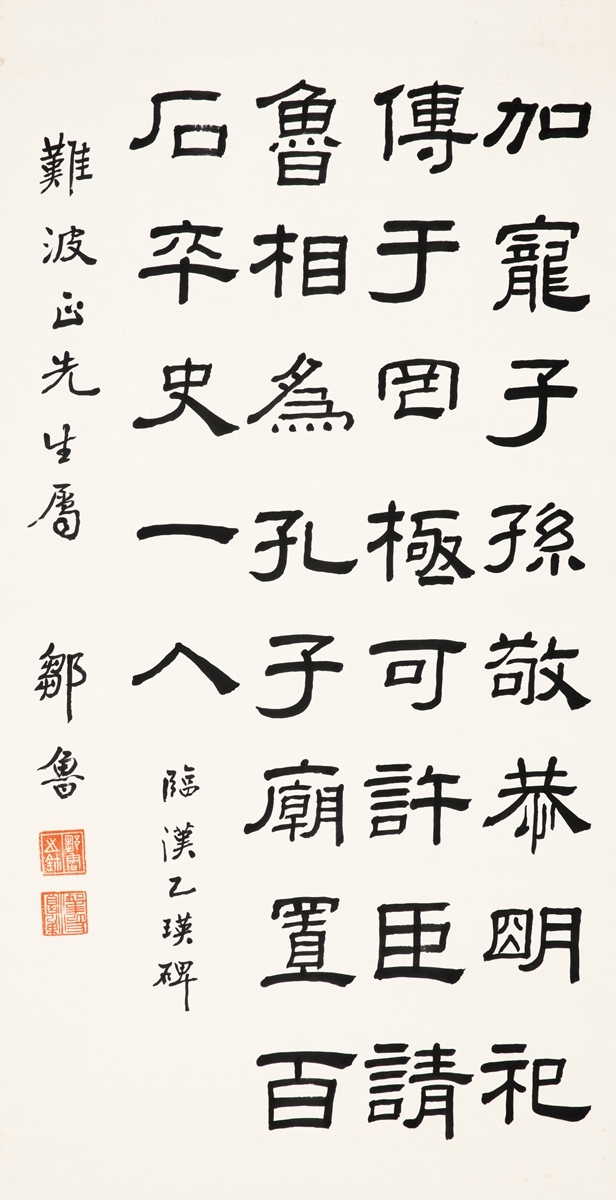 加寵子孫敬恭朙祀
傳于罔極可許臣請
魯相為孔子廟置百
石卒史一人
臨漢乙瑛碑
難波正先生屬
鄒魯